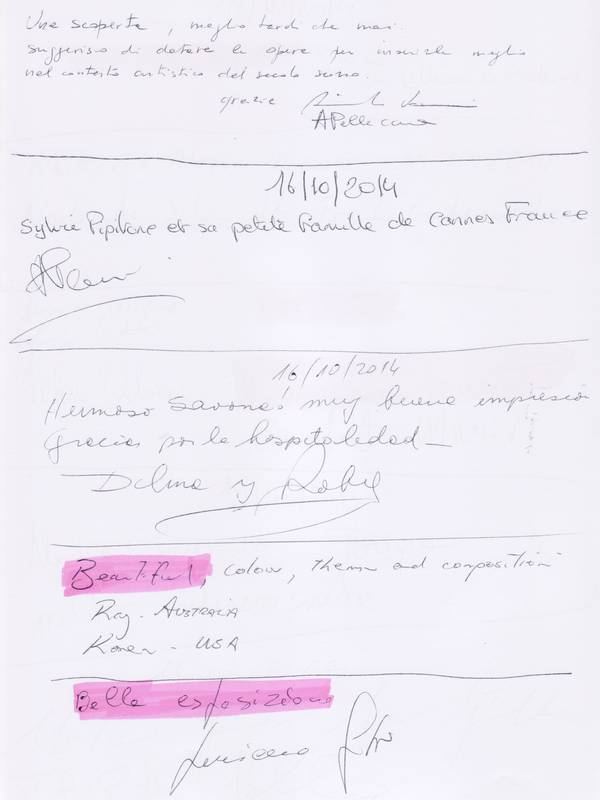 Una scoperta, meglio tardi che mai.
Suggerisco di datare le opere per inserirle meglio
nel contesto artistico del secolo scorso.
grazie
APellecane
16/10/2014
Sylvie Pipitone et sa petite famille de Cannes France
16/10/2014
Hermoso Savona! muy buena impresión
Gracias por la hospitalidad -
Delma y
Beautiful, colour, theme and composition
Ray - AUSTRALIA
Karen - USA
Bella esposizione
Luciano